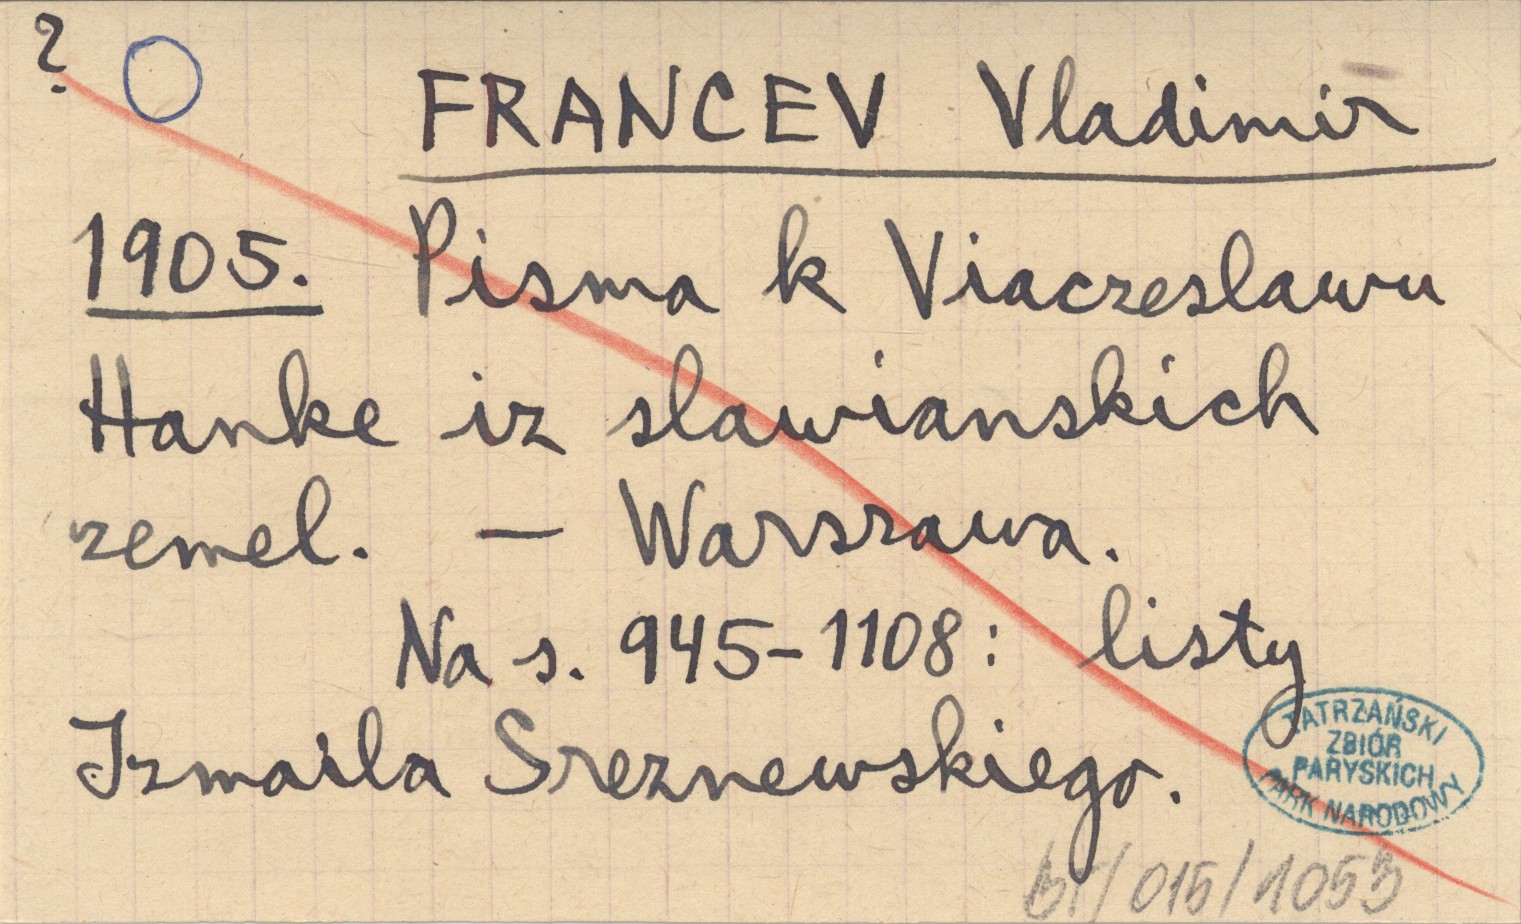 ?
FRANCEV Vladimir
1905. Pisma k Viaczeslawu
Hanke iz slawianskich
zemel. — Warszawa.
Na s. 945-1108: listy
Izmaila Sreznewskiego.
TATRZAŃSKI
ZBIÓR
PARYSKICH
PARK NARODOWY
bf/015/1053